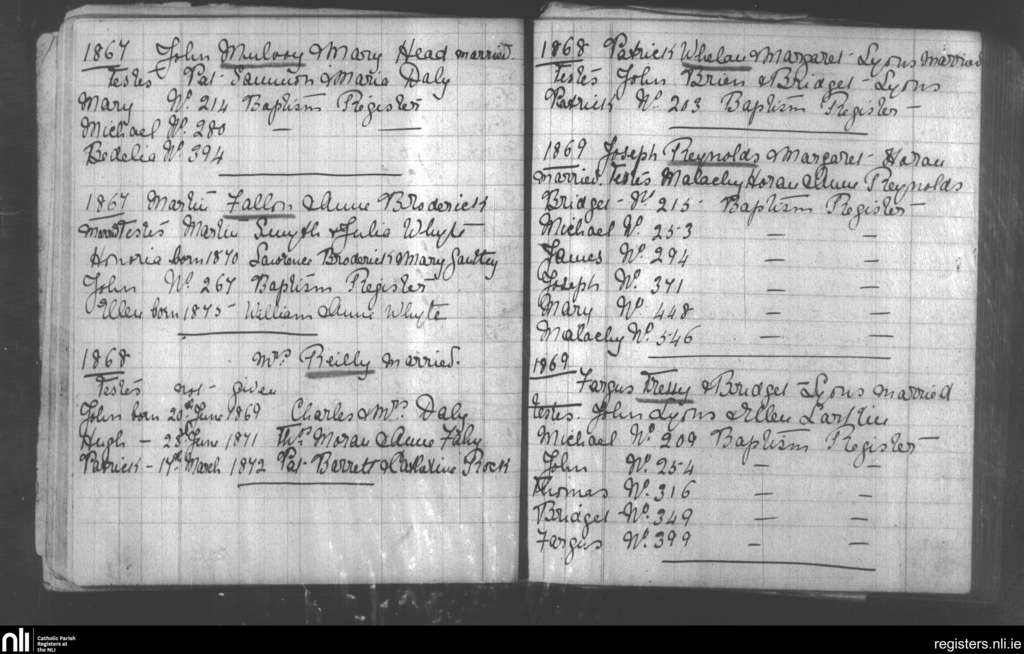 1867 John Mulvoy & Mary Head married.
Testes Pat Scunnion & Maria Daly
Mary No. 214 Baptism Register
Michael No. 280 — —
Bedelia No. 394
1867 Martin Fallon & Anne Broderick
Married Testes Martin Smyth & Julia Whyte
Honoria born 1870 Lawrence Broderick & Mary
John No. 267 Baptism Register
Ellen born 1875 – William & Anne Whyte
1868 Mrs Reilly married.
Testes not given
John born 20th June 1869 Charles & Mrs. Daly
Hugh – June 1871 Ths Moran & Anne Fahy
Patrick – 17th March 1872 Pat Barrett & Catherine Rock
1868 Patrick Whelan & Margaret Lyons married
Testes John Brien & Bridget Lyons
Patrick No. 203 Baptism Register —
1869 Joseph Reynolds & Margaret Horan
married. Testes Malachy Horan & Anne Reynolds
Bridget No 215 Baptism Register —
Michael No. 253 — —
James No. 294 — —
Joseph No. 371 — —
Mary No. 448 — —
Malachy No. 546 — —
1869
Fargus & Bridget Lyons married
Testes. John Lyons & Ellen Larkin
Michael No. 209 Baptism Register —
John No. 254 — —
Thomas No. 316 — —
Bridget No. 349 — —
Fargus No. 399 — —
nli Catholic Parish
Registers at
the NLI
registers.nli.ie